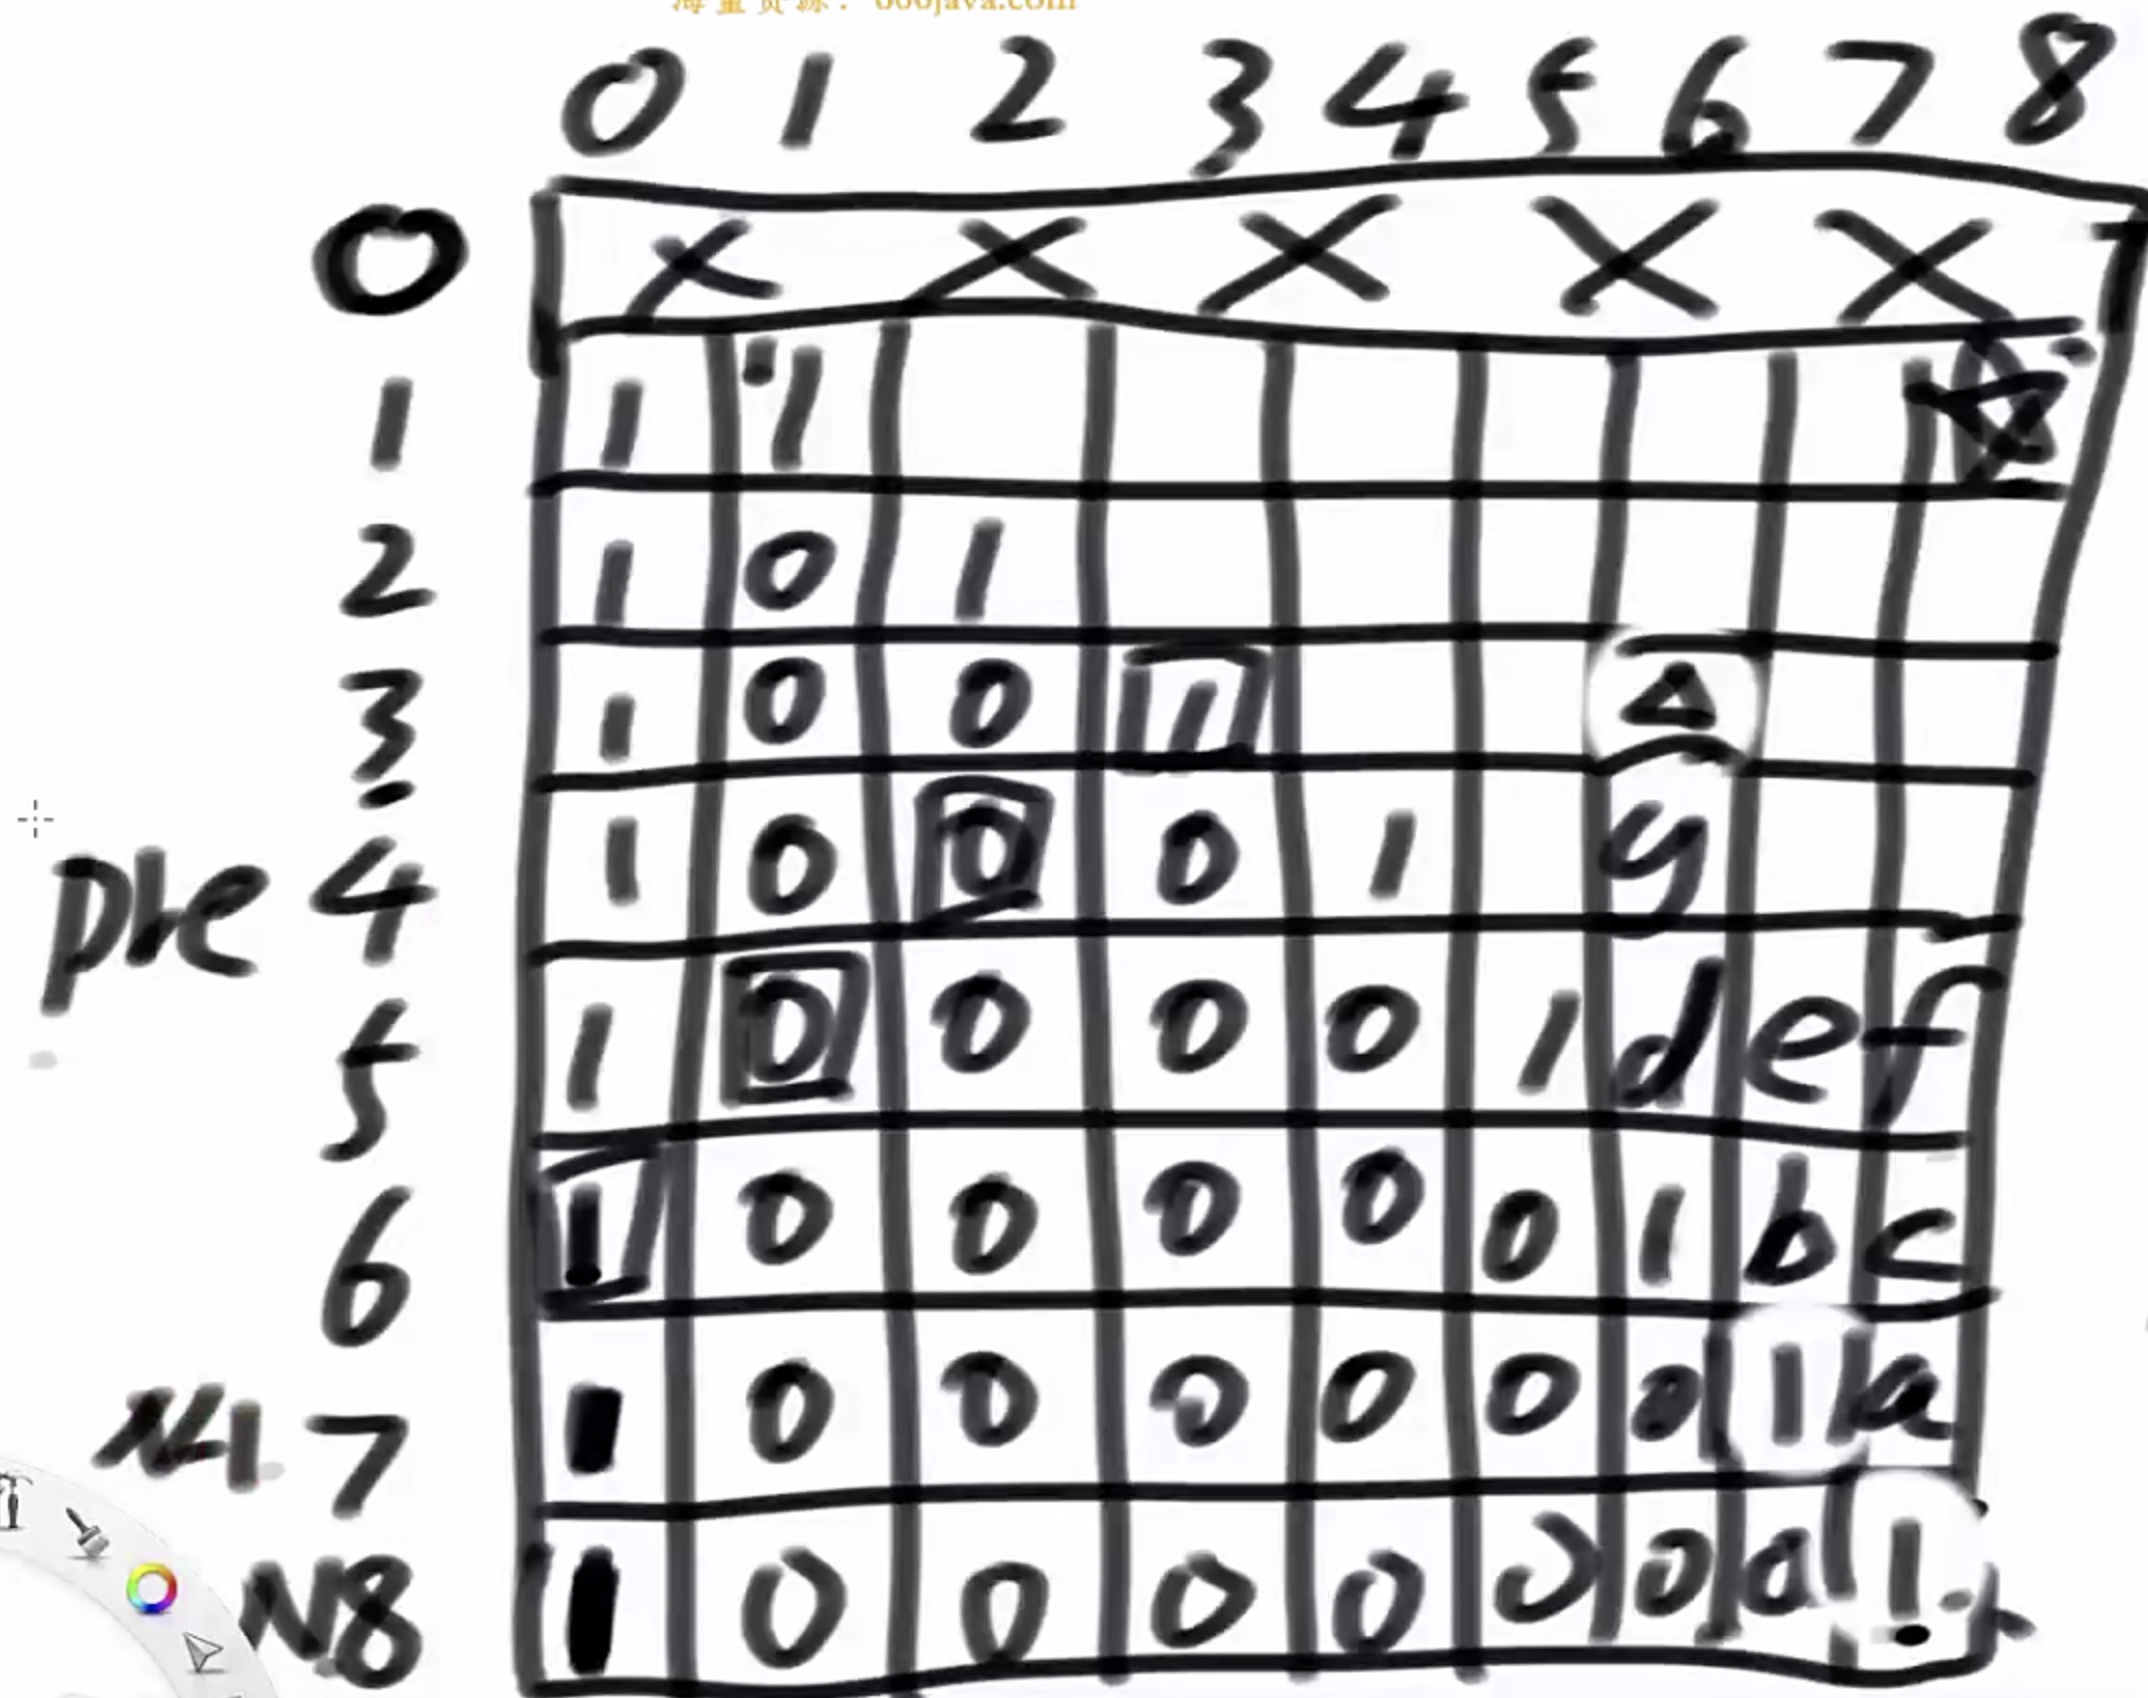 海量资源：666java.com
0 1 2 3 4 5 6 7 8
0 X X X X X
1 1 1
2 1 0 1
3 1 0 0 1
pre 4 1 0 0 0 1 y
5 1 0 0 0 0 1 d e f
6 1 0 0 0 0 0 1 b c
7 1 0 0 0 0 0 0 1 a
N 8 1 0 0 0 0 0 0 0 1